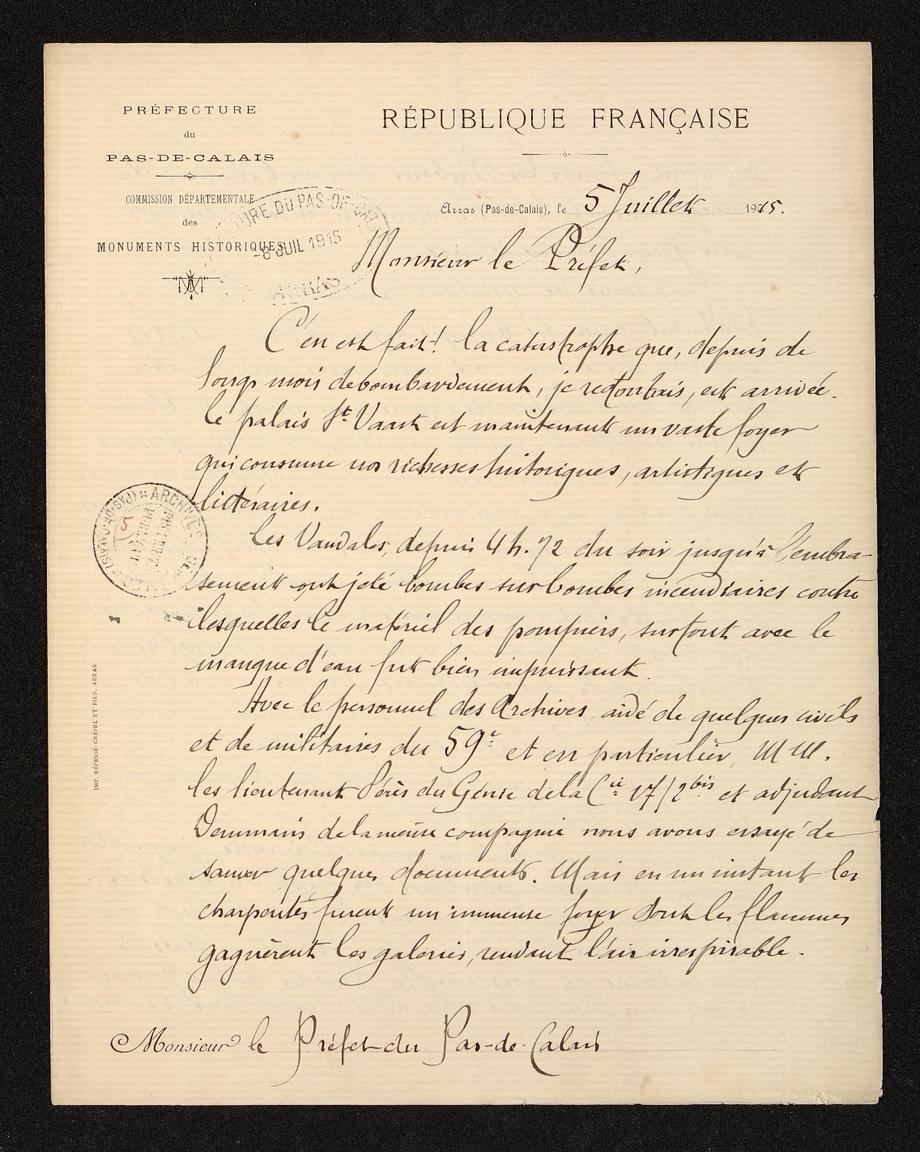 PRÉFECTURE
du
PAS-DE-CALAIS
COMMISSION DÉPARTEMENTALE
des
MONUMENTS HISTORIQUES
RÉPUBLIQUE FRANÇAISE
Arras (Pas-de-Calais), le 5 Juillet 1915.
URE DU PAS-DE-CAL
-8 JUIL 1915
ARRAS
Monsieur le Préfet,
C'en est fait! la catastrophe que, depuis de
longs mois de bombardement, je redoutais, est arrivée.
Le palais St Vaast est maintenant un vaste foyer
qui consume nos richesses historiques, artistiques et
littéraires.
Les Vandales, depuis 4 h. 1/2 du soir jusqu'à l'embra-
sement ont jeté bombes sur bombes incendiaires contre
lesquelles le matériel des pompiers, surtout avec le
manque d'eau fut bien impuissant.
Avec le personnel des Archives, aidé de quelques civils
et de militaires du 59e et en particulier, MM.
les lieutenant Pérès du Génie de la Cie 17/2bis et adjudant
Demmain de la même compagnie nous avons essayé de
sauver quelques documents. Mais en un instant les
charpentes furent un immense foyer dont les flammes
gagnèrent les galeries, rendant l'air irrespirable.
Monsieur le Préfet du Pas-de-Calais
ARCHIVES
5
IMP. RÉPESSÉ-CRÉPEL ET FILS, ARRAS